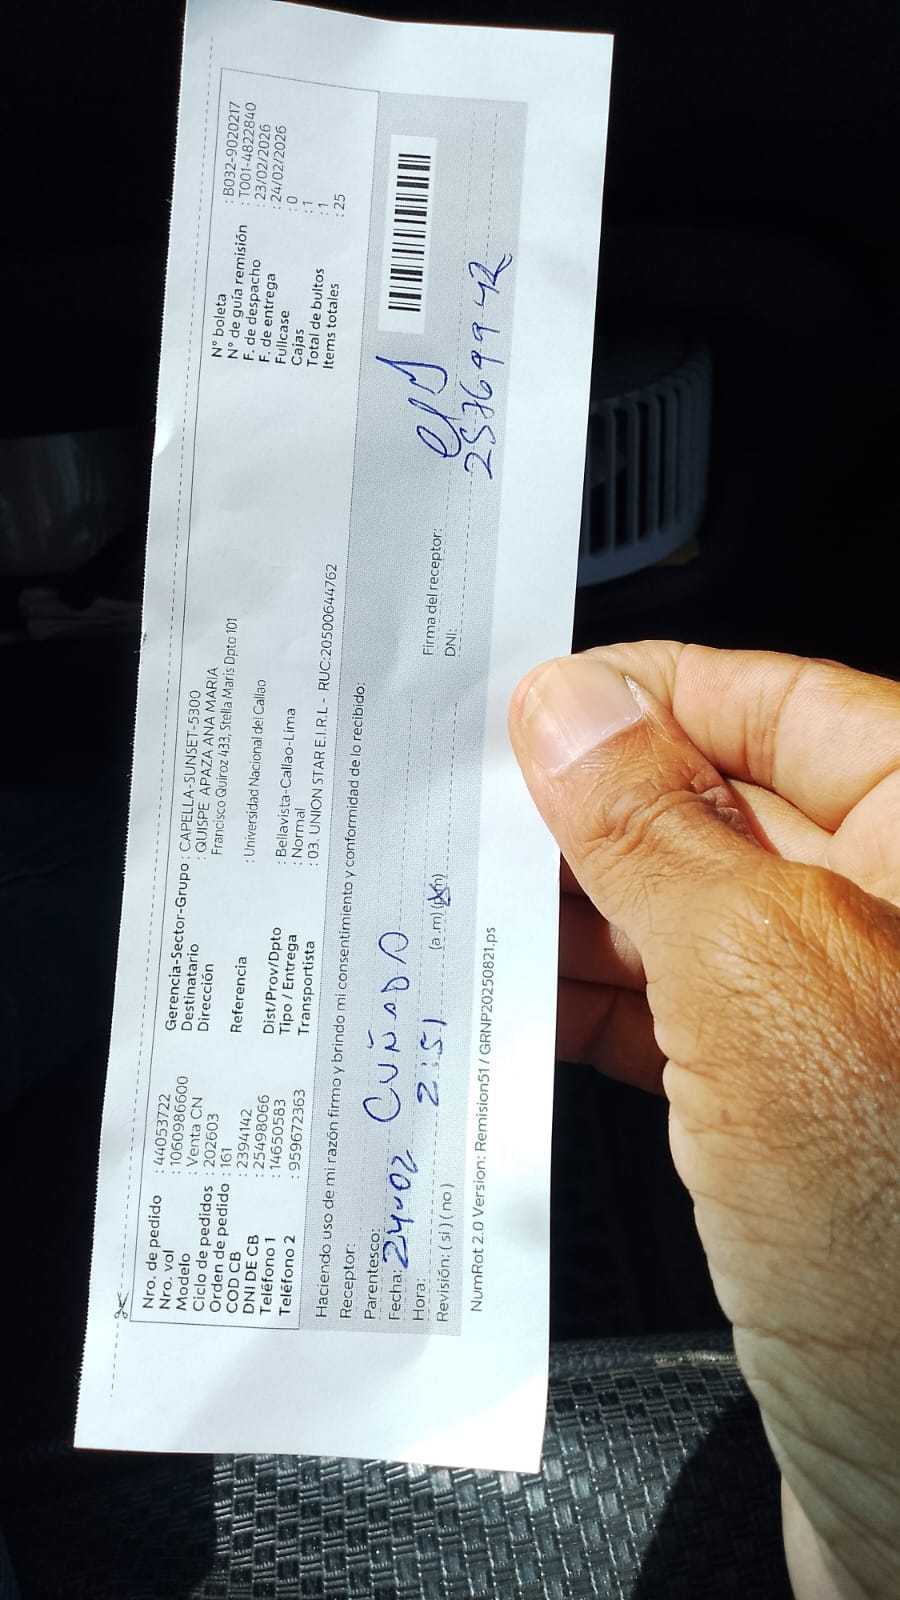 Nro. de pedido : 44053722
Nro. vol : 1060986600
Modelo : Venta CN
Ciclo de pedidos : 202603
Orden de pedido : 161
COD CB : 2394142
DNI DE CB : 25498066
Teléfono 1 : 14650583
Teléfono 2 : 959672363
Gerencia-Sector-Grupo : CAPELLA-SUNSET-5300
Destinatario : QUISPE APAZA ANA MARIA
Dirección Francisco Quiroz 433, Stella Maris Dpto 101
Referencia : Universidad Nacional del Callao
Dist/Prov/Dpto : Bellavista-Callao-Lima
Tipo / Entrega : Normal
Transportista : 03. UNION STAR E.I.R.L - RUC:20500644762
N° boleta : B032-9020217
N° de guía remisión : T001-4822840
F. de despacho : 23/02/2026
F. de entrega : 24/02/2026
Fullcase : 0
Cajas : 1
Total de bultos : 1
Items totales : 25
Haciendo uso de mi razón firmo y brindo mi consentimiento y conformidad de lo recibido:
Receptor:
Parentesco: CUÑADA
Fecha: 24-02
Hora: 2:51 (a.m) (p.m)
Revisión: ( si ) ( no )
Firma del receptor:
DNI: 25769942
NumRot 2.0 Version: Remision51 / GRNP20250821.ps